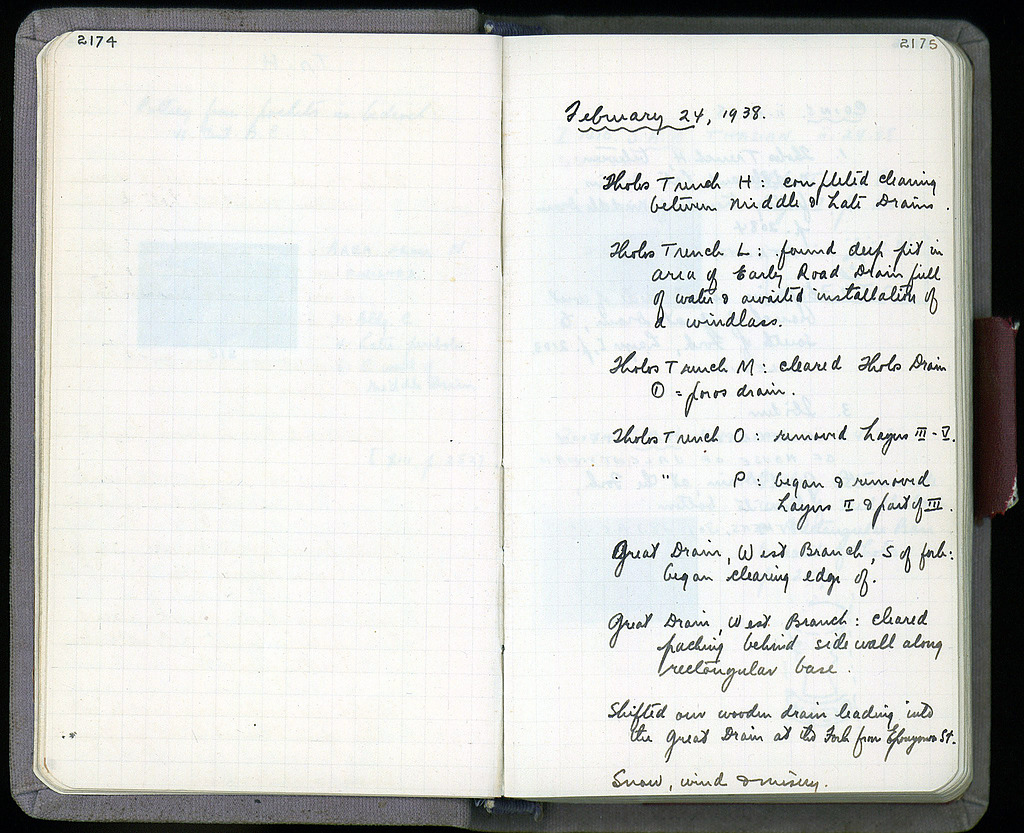 2174
2175
February 24, 1938.
Tholos Trench H: completed clearing
between Middle & Late Drains.
Tholos Trench L: found deep pit in
area of Early Road Drain full
of water & awaited installation of
a windlass.
Tholos Trench M: cleared Tholos Drain
① = poros drain.
Tholos Trench O: removed Layers III - V.
" " P: began & removed
Layers II & part of III.
Great Drain, West Branch, S of fork:
began clearing edge of.
Great Drain, West Branch: cleared
packing behind side wall along
rectangular base.
Shifted our wooden drain leading into
the Great Drain at its Fork from St.
Snow, wind & misery.